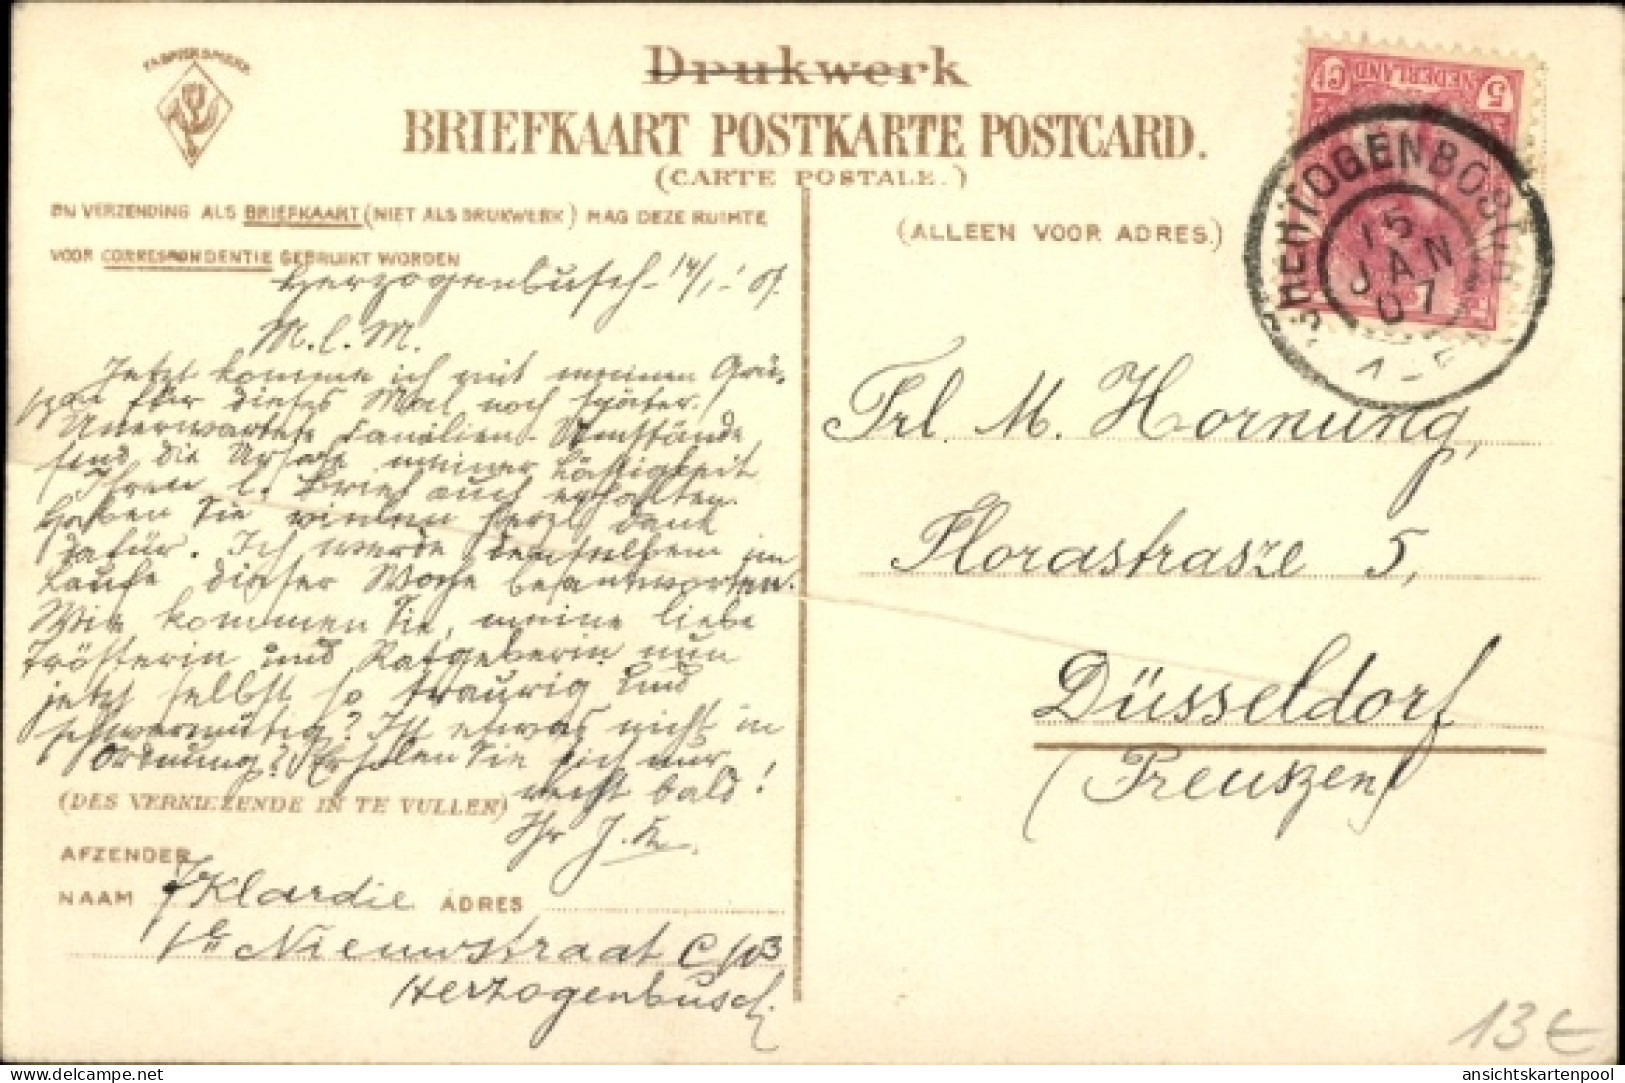 FABRIEKSMERK
Drukwerk
BRIEFKAART POSTKARTE POSTCARD.
(CARTE POSTALE.)
BIJ VERZENDING ALS BRIEFKAART (NIET ALS DRUKWERK) MAG DEZE RUIMTE
VOOR CORRESPONDENTIE GEBRUIKT WORDEN
(ALLEEN VOOR ADRES.)
NEDERLAND
5 CT 5
'S HERTOGENBOSCH
15
JAN
07
Herzogenbusch 14/1. 07.
M. l. M.
Jetzt komme ich mit meinen Grü-
ßen für dieses Mal noch später.
Unerwartete Familien-Umstände
sind die Ursache meiner Lässigkeit
Ihren l. Brief auch erhalten.
Haben Sie vielen herzl. Dank
dafür. Ich werde denselben im
Laufe dieser Woche beantworten.
Wie kommen Sie, meine liebe
Trösterin und Ratgeberin nun
jetzt selbst so traurig und
schwermütig? Ist etwas nicht in
Ordnung? Erholen Sie sich nur
recht bald!
Ihr J. K.
(DES VERKIEZENDE IN TE VULLEN)
AFZENDER
NAAM J Klardie ADRES
1e Nieuwstraat C 103
Herzogenbusch.
Frl. M. Hornung,
Florastrasze 5,
Düsseldorf
(Preuszen)
13 €
www.delcampe.net
ansichtskartenpool